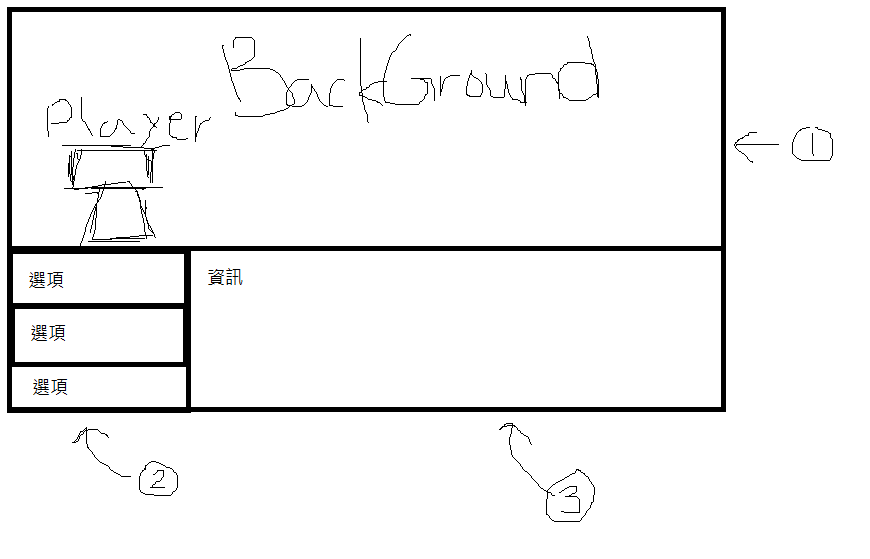 BackGround
Player
1
選項
資訊
選項
選項
2
3